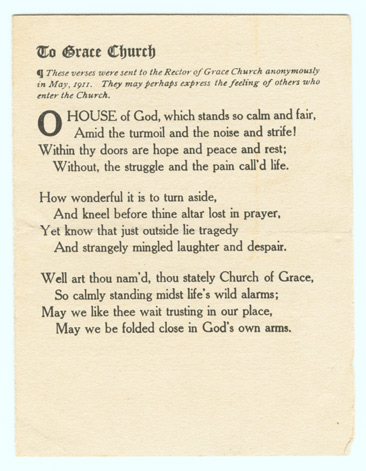 To Grace Church
¶ These verses were sent to the Rector of Grace Church anonymously
in May, 1911. They may perhaps express the feeling of others who
enter the Church.
O HOUSE of God, which stands so calm and fair,
Amid the turmoil and the noise and strife!
Within thy doors are hope and peace and rest;
Without, the struggle and the pain call'd life.
How wonderful it is to turn aside,
And kneel before thine altar lost in prayer,
Yet know that just outside lie tragedy
And strangely mingled laughter and despair.
Well art thou nam'd, thou stately Church of Grace,
So calmly standing midst life's wild alarms;
May we like thee wait trusting in our place,
May we be folded close in God's own arms.